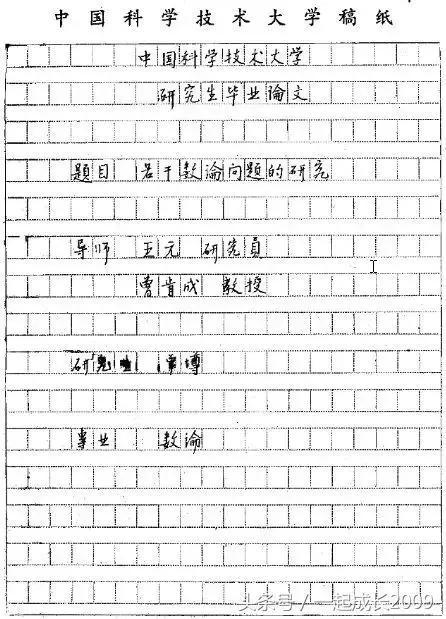 中国科学技术大学稿纸
中国科学技术大学
研究生毕业論文
题目 若干数論问题的研究
导师 王元 研究員
曾肯成 教授
研究生 单墫
専业 数論
头条号/一起成长2009